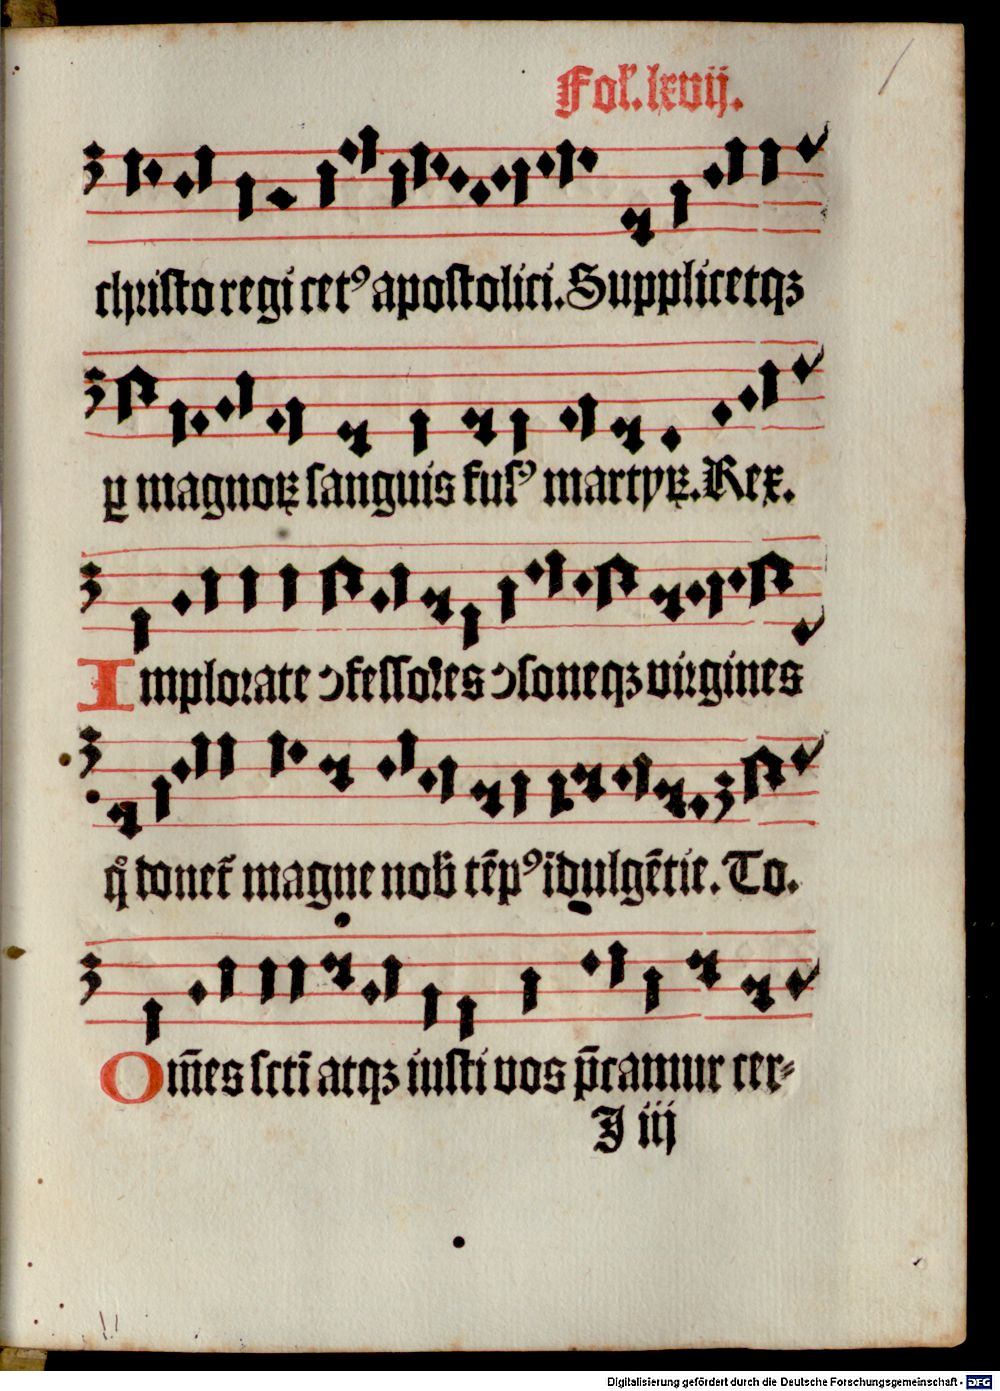 Fol. lxvij.
christo regi cetꝰ apostolici. Supplicetqꝫ
ꝑ magnoꝝ sanguis fusꝰ martyꝝ. Rex.
Implorate ↄfessores ↄsoneqꝫ virgines
q̊ donet̃ magne nob̃ tẽpꝰ idulgẽtie. To.
Om̃es scti atqꝫ iusti vos p̃camur cer-
J iij
Digitalisierung gefördert durch die Deutsche Forschungsgemeinschaft - DFG